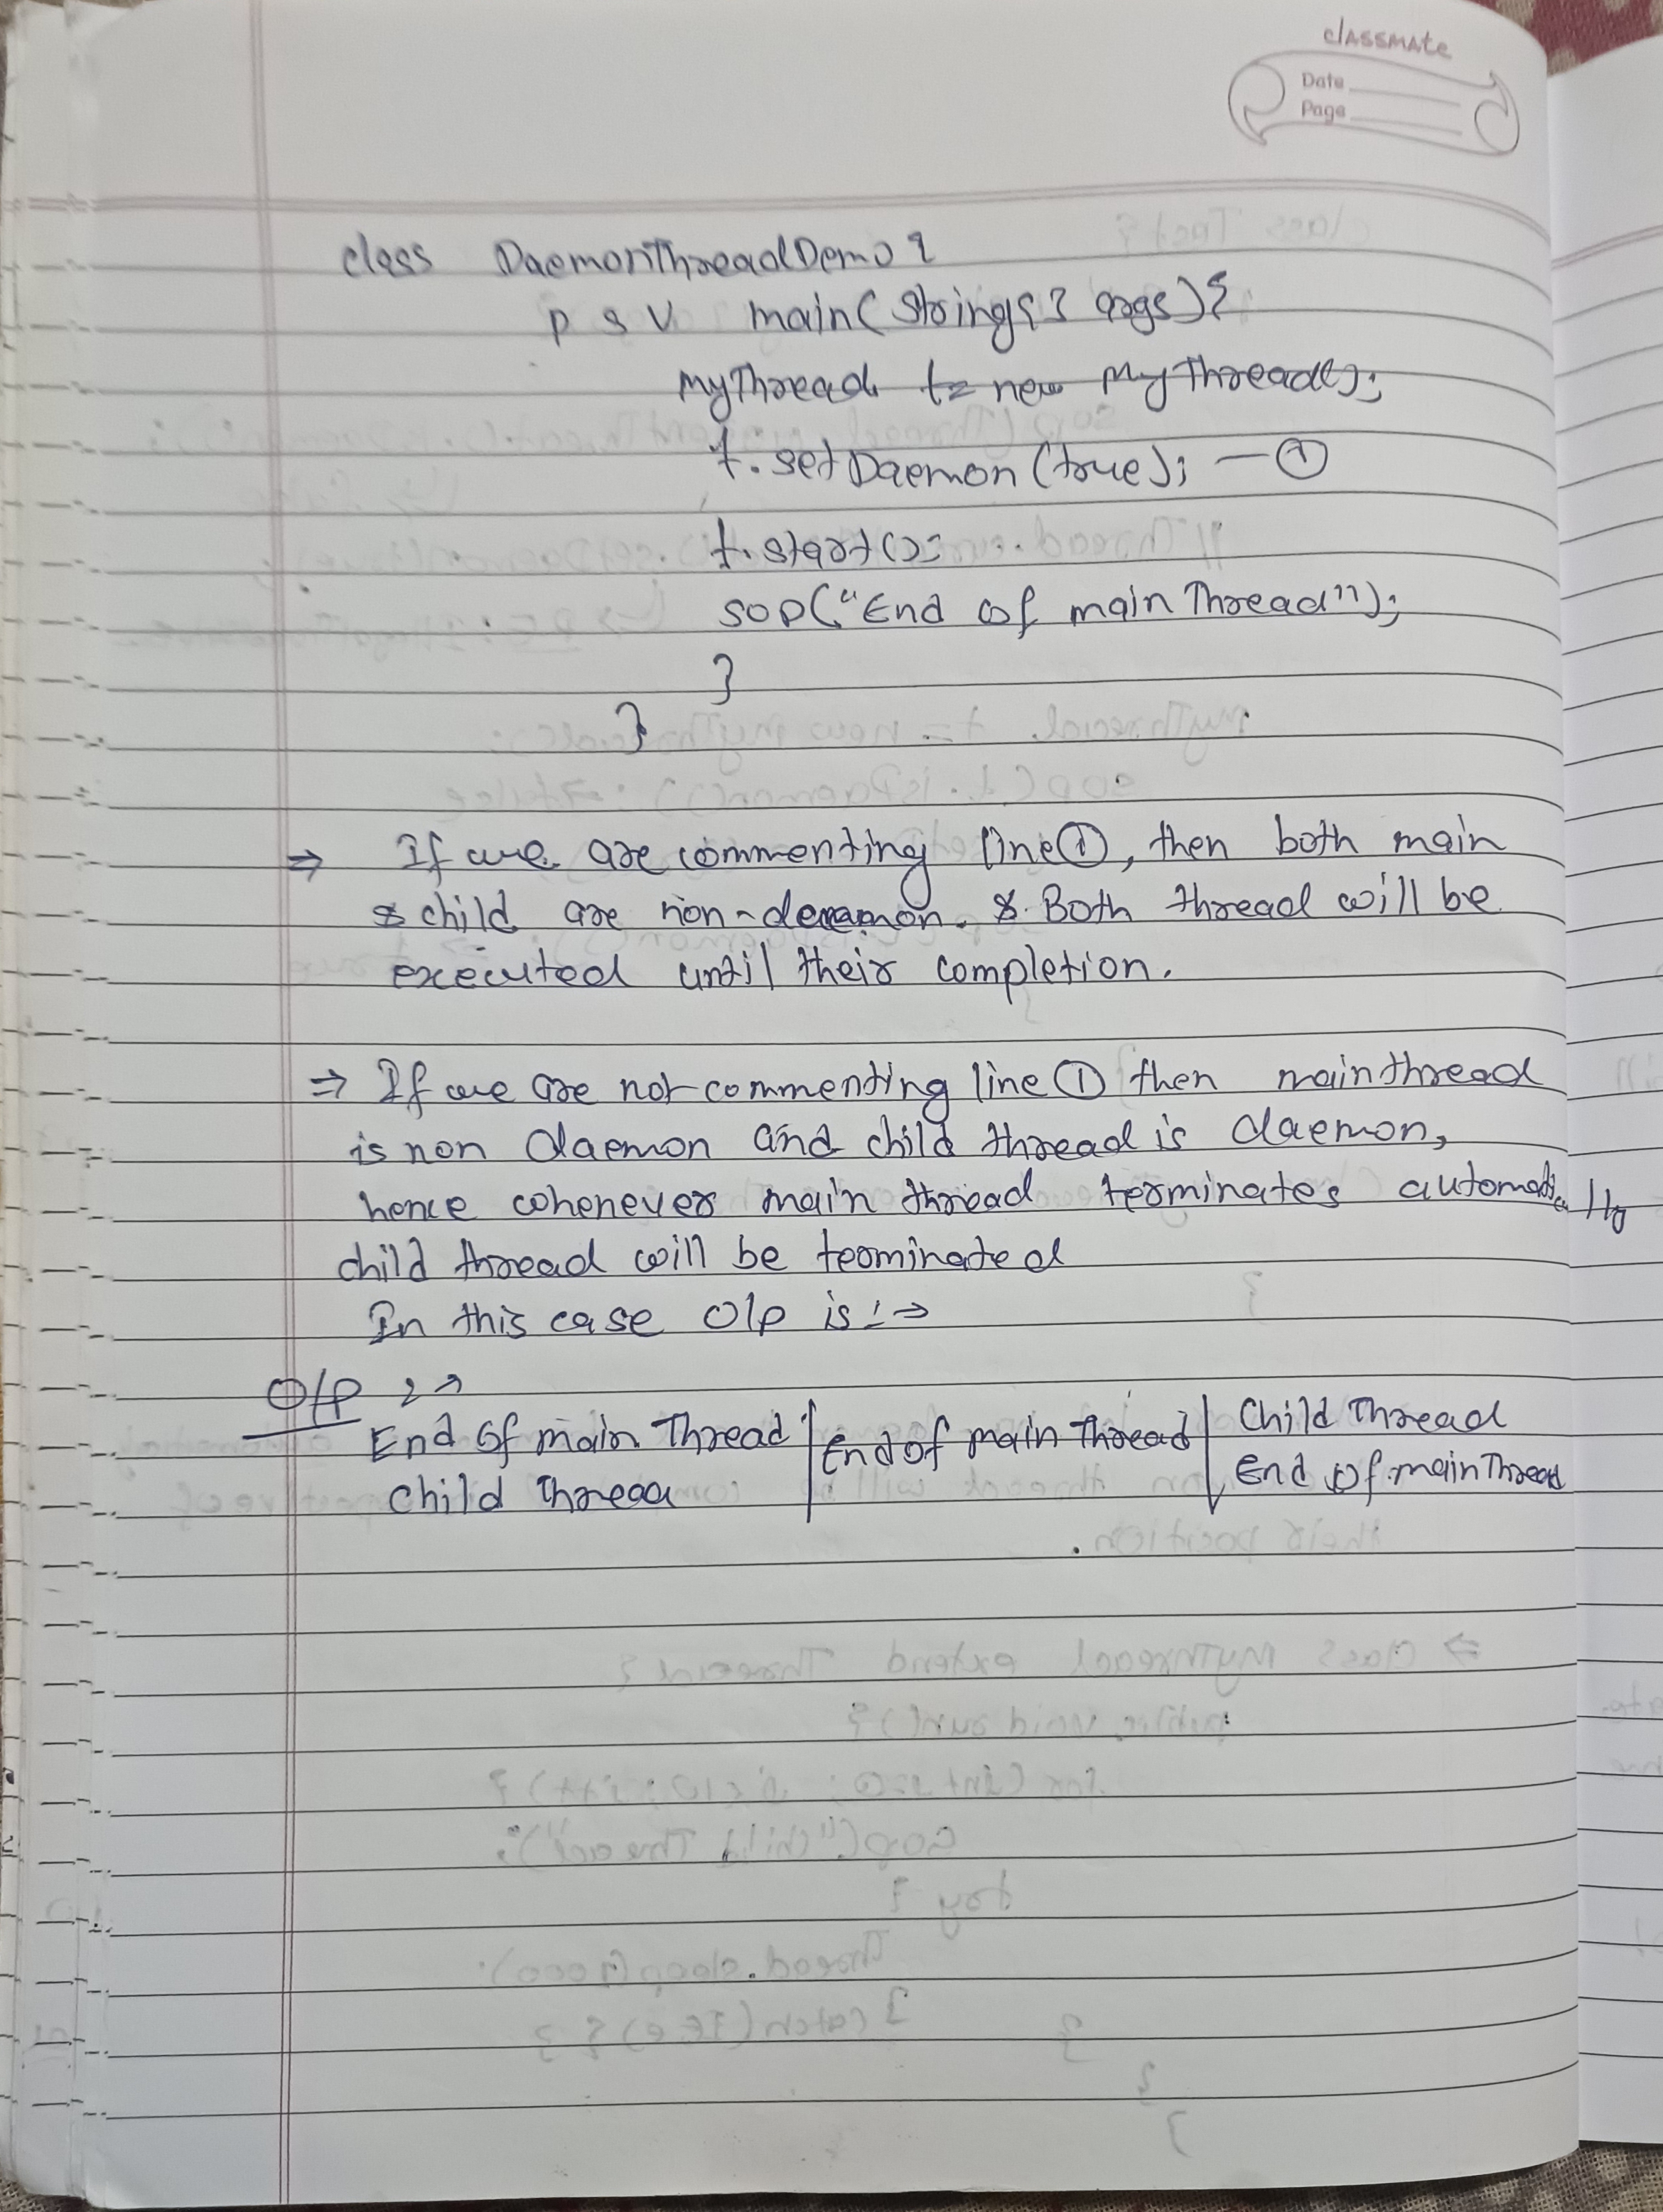 classmate
Date
Page
class DaemonThreadDemo {
p s v main(String[] args){
MyThread t= new MyThread();
t.setDaemon(true); — ①
t.start();
sop("End of main Thread");
}
}
⇒ If we are commenting line①, then both main
& child are non-deamon. & Both thread will be
executed until their completion.
⇒ If we are not commenting line ① then main thread
is non daemon and child thread is daemon,
hence whenever main thread terminates automatically
child thread will be terminated
In this case O/p is :→
O/P :→
End of main Thread | End of main Thread | Child Thread
Child Thread | End of main Thread